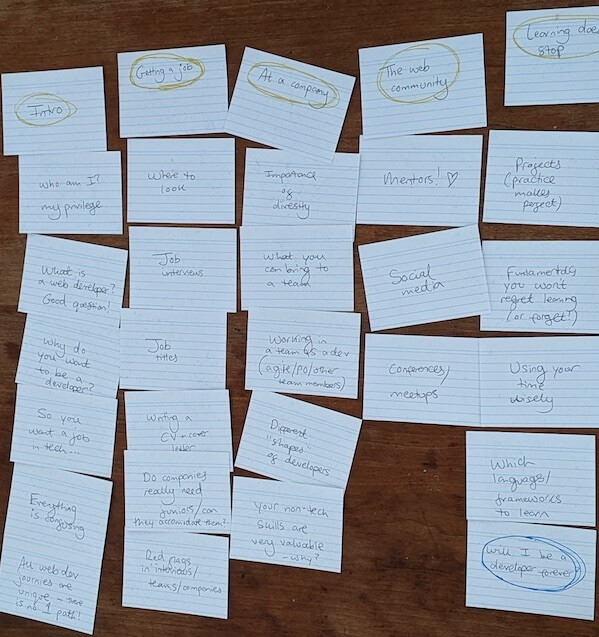 Intro
who am I?
my privilege
What is
a web developer?
Good question!
Why do
you want
to be a
developer?
So you
want a job
in tech...
Everything
is confusing
All web dev
journies are
unique – there
is no 1 path!
Getting a job
Where to
look
Job
interviews
Job
titles
Writing a
CV + cover
letter
Do companies
really need
juniors/can
they accomodate them?
Red flags
in interviews/
teams/companies
At a company
Importance
of
diversity
What you
can bring to
a team
Working in
a team as a dev
(agile/PO/other
team members)
Different
"shapes"
of developers
Your non-tech
skills are
very valuable
– why?
The web
community
Mentors! ♡
Social
media
Conferences/
meetups
Learning
stop
Projects
(practice
makes
perfect)
Fundamentals
you won't
regret learning
(or forget!)
Using your
time
wisely
Which
languages/
frameworks
to learn
Will I be a
developer forever?